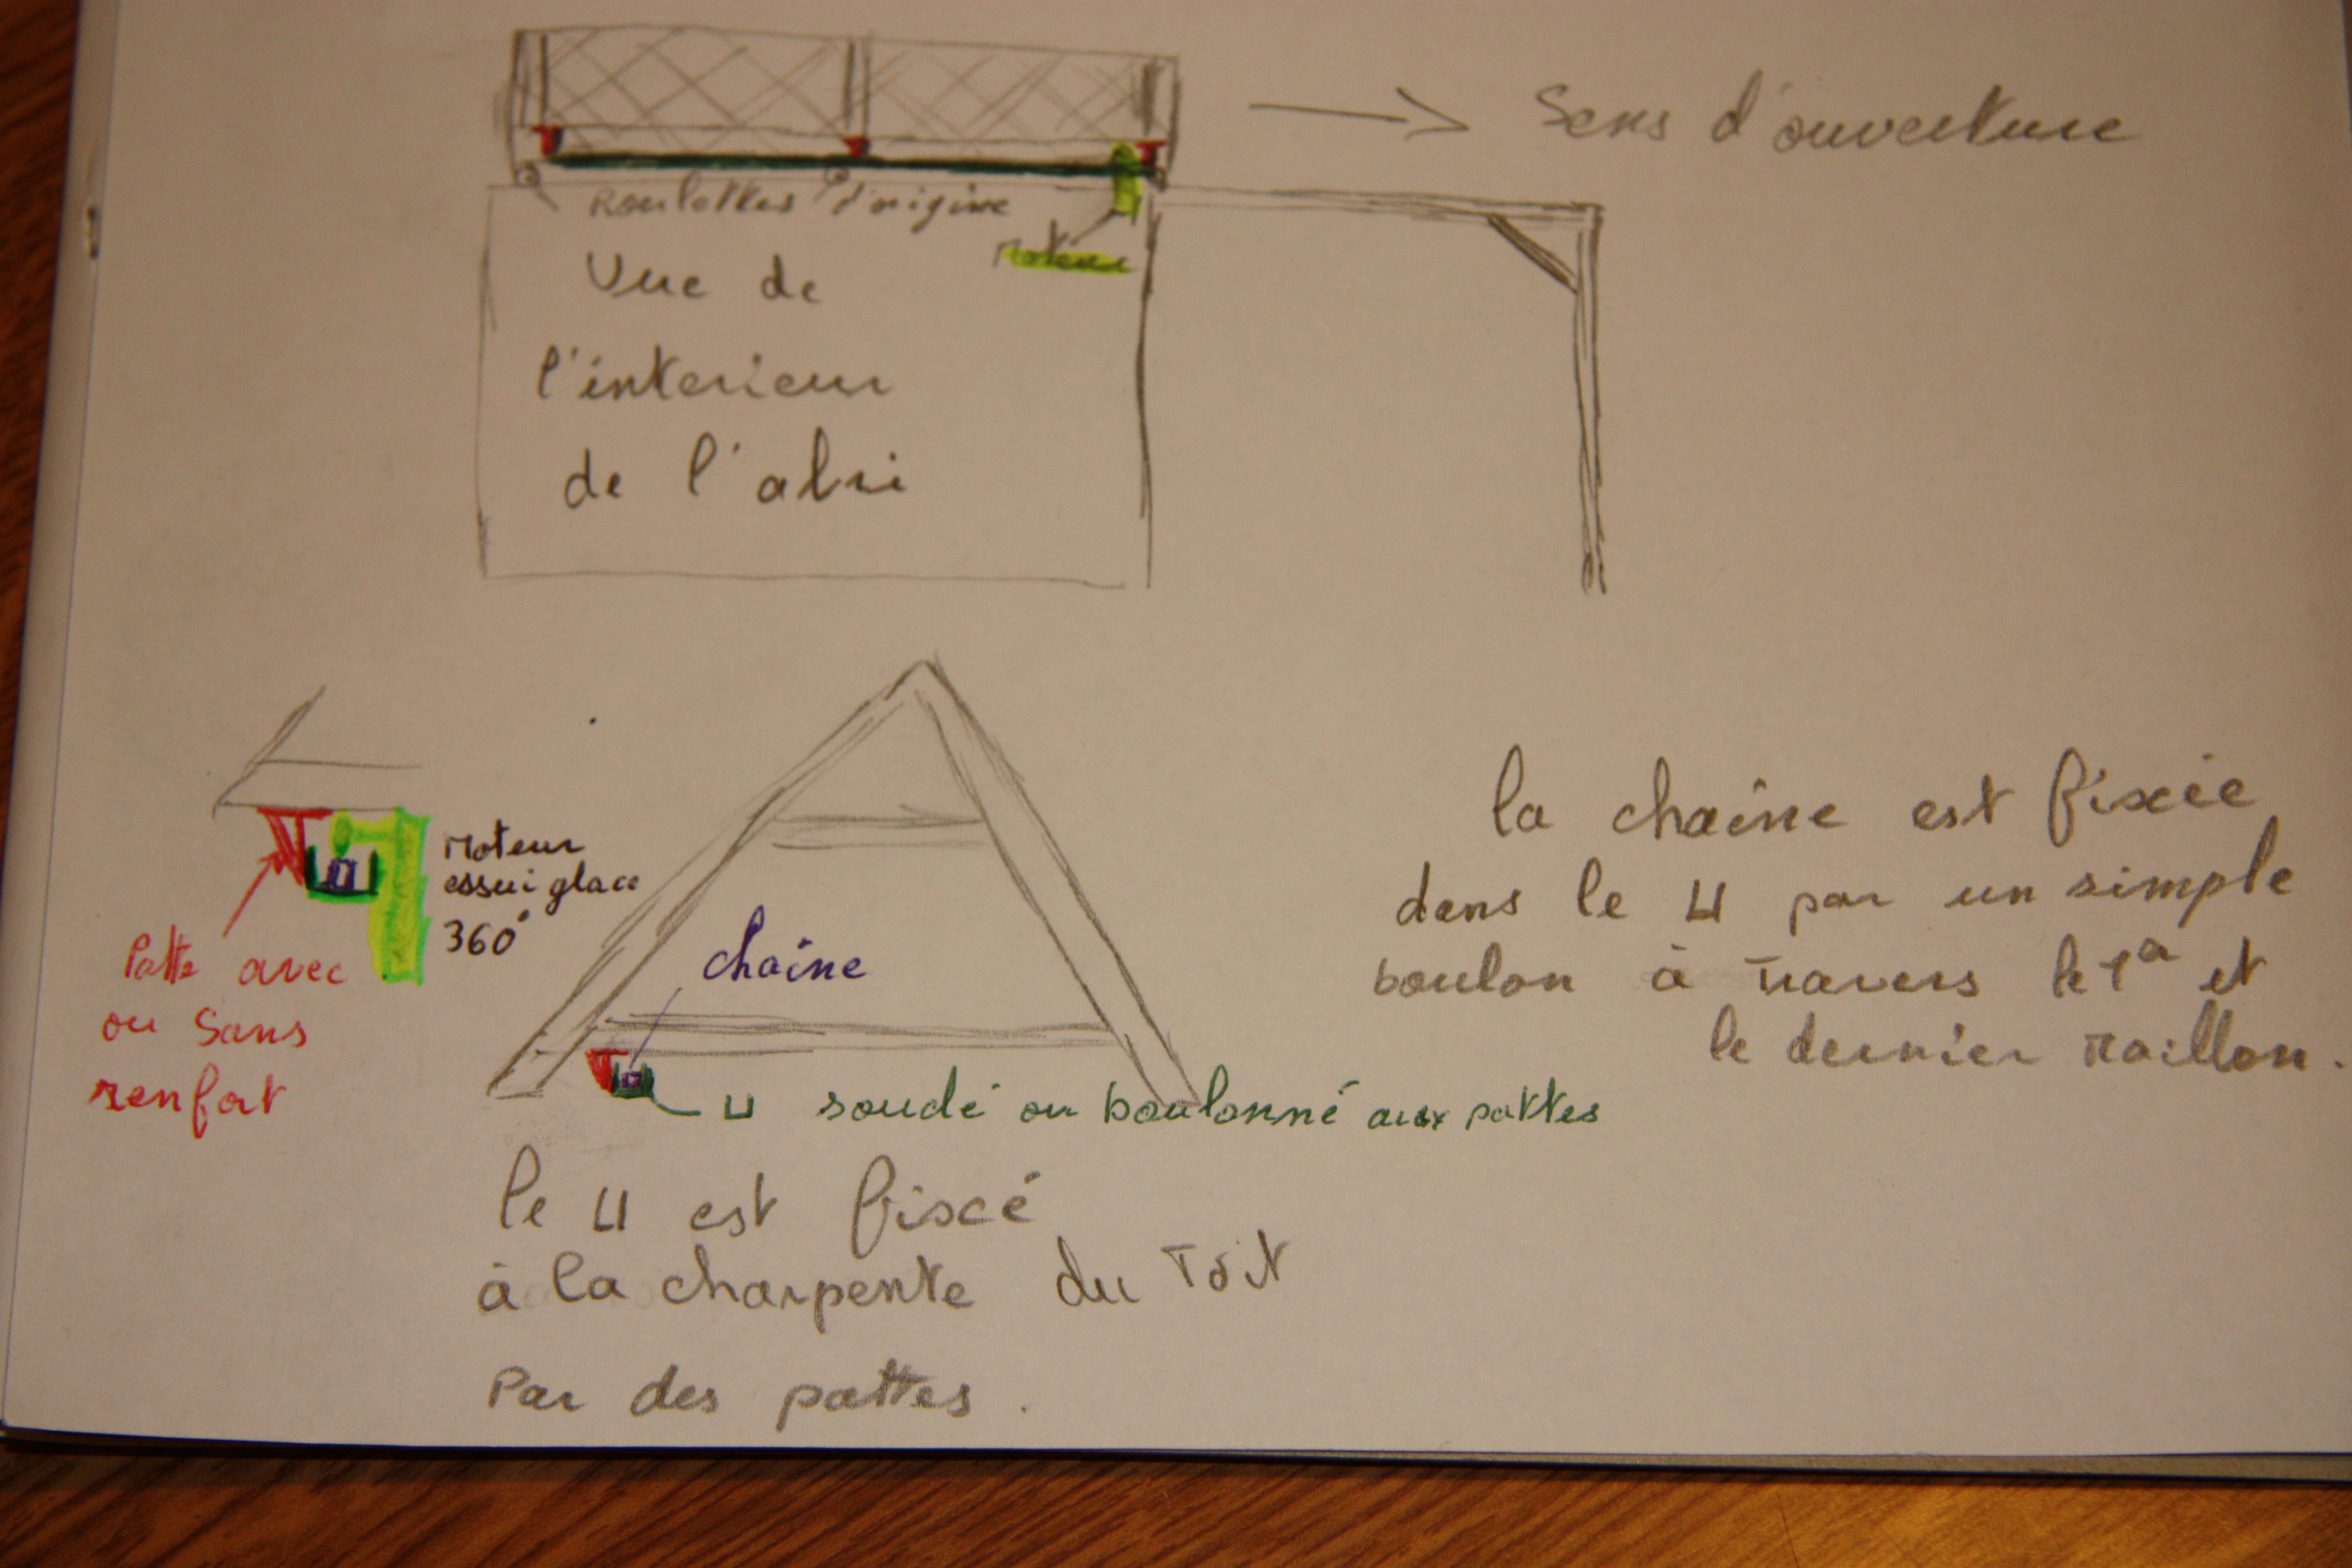 Sens d'ouverture
Roulettes d'origine
Moteur
Vue de
l'interieur
de l'abri
Moteur
essui glace
360°
Patte avec
ou sans
renfort
chaine
U soudé ou boulonné aux pattes
la chaine est fixée
dans le U par un simple
boulon à travers le 1er et
le dernier maillon.
le U est fixé
à la charpente du toit
Par des pattes.